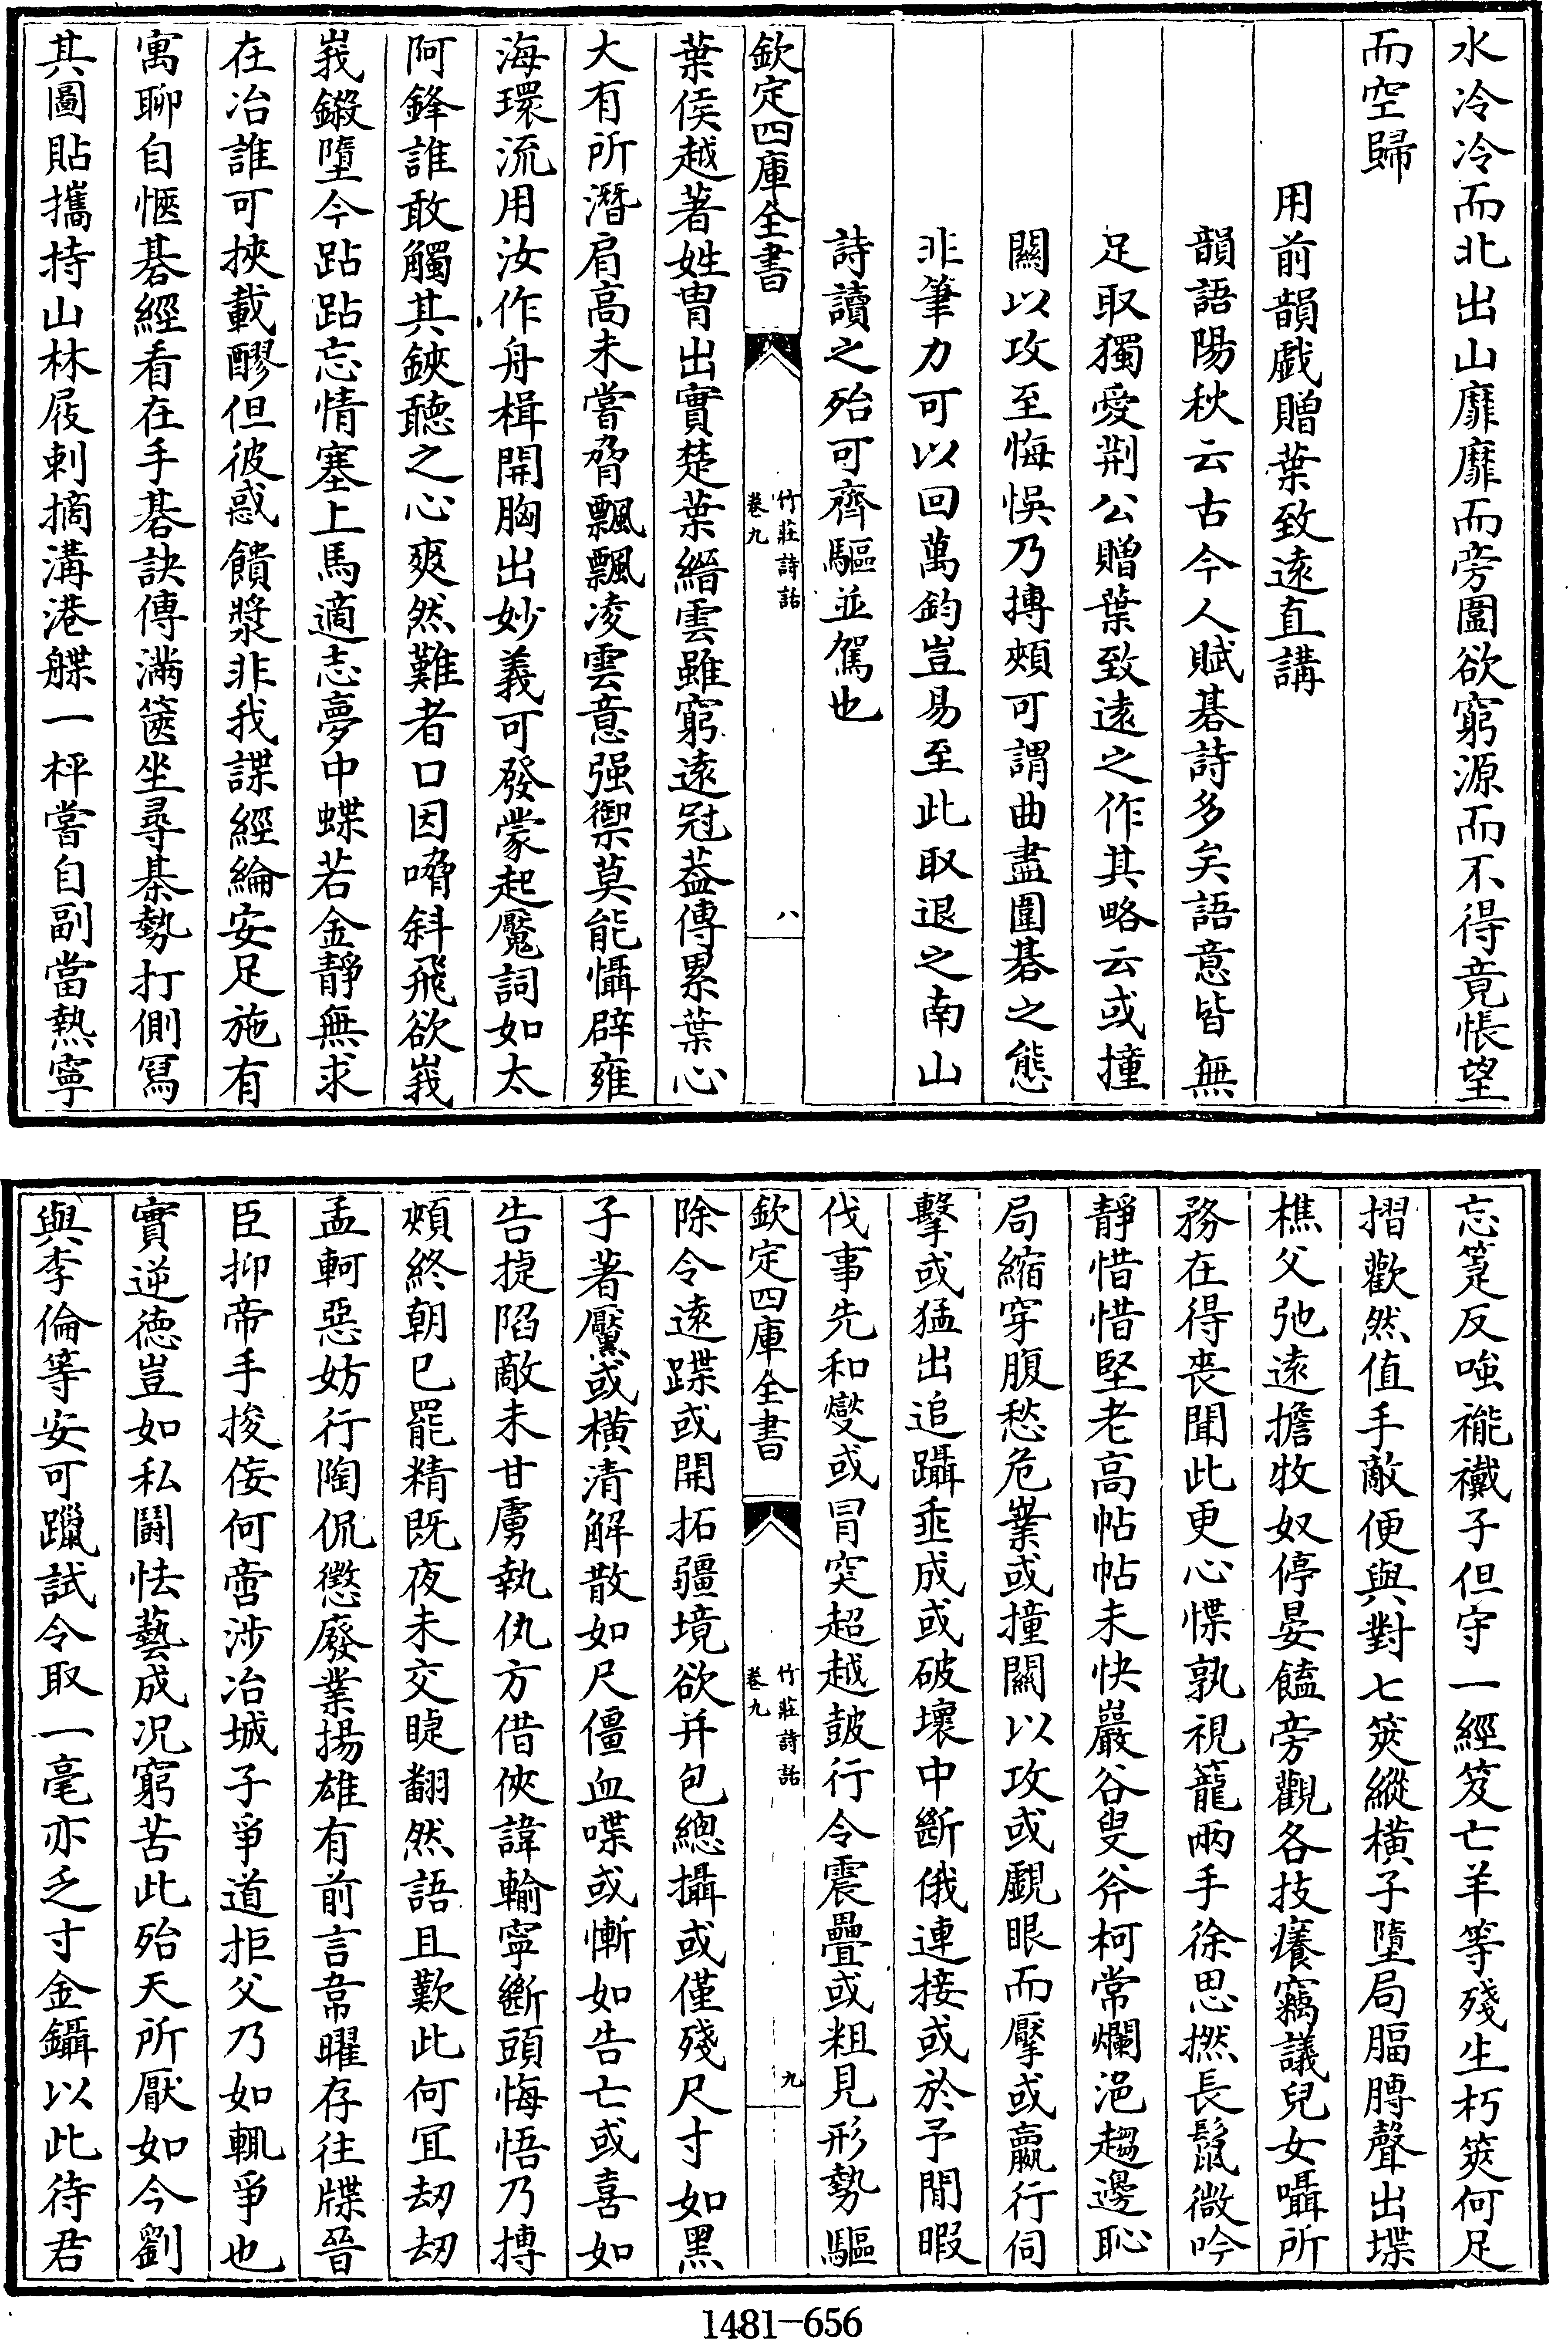 水冷冷而北出山靡靡而旁圍欲窮源而不得竟悵望
而空歸
用前韻戯贈葉致遠直講
韻語陽秋云古今人賦碁詩多矣語意皆無
足取獨愛荆公贈葉致遠之作其略云或撞
關以攻至悔悞乃摶頰可謂曲盡圍碁之態
非筆力可以回萬鈞豈易至此取退之南山
詩讀之殆可齊驅並駕也
欽定四庫全書
竹莊詩話
卷九
八
葉侯越著姓胄出實楚葉縉雲雖窮遠冠葢傳累葉心
大有所潛肩高未嘗脅飄飄凌雲意强禦莫能懾辟雍
海環流用汝作舟楫開胸出妙義可發蒙起魘詞如太
阿鋒誰敢觸其鋏聽之心爽然難者口因嗋斜飛欲峩
峩鎩墮今跕跕忘情塞上馬適志夢中蝶若金靜無求
在冶誰可挾載醪但彼惑饋漿非我諜經綸安足施有
寓聊自愜碁經看在手碁訣傳滿篋坐尋棊勢打側冩
其圖貼攜持山林屐刺摘溝港艓一枰嘗自副當熱寧
忘箑反嗤褦襶子但守一經笈亡羊等殘生朽筴何足
摺歡然值手敵便與對七筴縱橫子墮局腷膊聲出堞
樵父弛遠擔牧奴停晏饁旁觀各技癢竊議兒女囁所
務在得喪聞此更心惵孰視籠兩手徐思撚長鬚微吟
靜惜惜堅老高帖帖未快巖谷叟斧柯常爛浥趨邊恥
局縮穿腹愁危嶪或撞關以攻或覷眼而擪或羸行伺
擊或猛出追躡垂成或破壞中斷俄連接或於予閒暇
伐事先和燮或冒突超越鼓行令震疊或粗見形勢驅
欽定四庫全書
竹莊詩話
卷九
九
除令遠蹀或開拓疆境欲并包總攝或僅殘尺寸如黑
子著黶或橫清解散如尺僵血喋或慚如告亡或喜如
告㨗陷敵未甘虜執仇方借俠諱輸寧斷頭悔悟乃摶
頰終朝巳罷精既夜未交睫翻然語且歎此何宜刼刼
孟軻惡妨行陶侃懲廢業揚雄有前言韋曜存往牒晉
臣抑帝手捘侫何啻涉冶城子爭道拒父乃如輒爭也
實逆德豈如私鬭怯藝成况窮苦此殆天所厭如今劉
與李倫等安可躐試令取一毫亦乏寸金鑷以此待君
1481-656